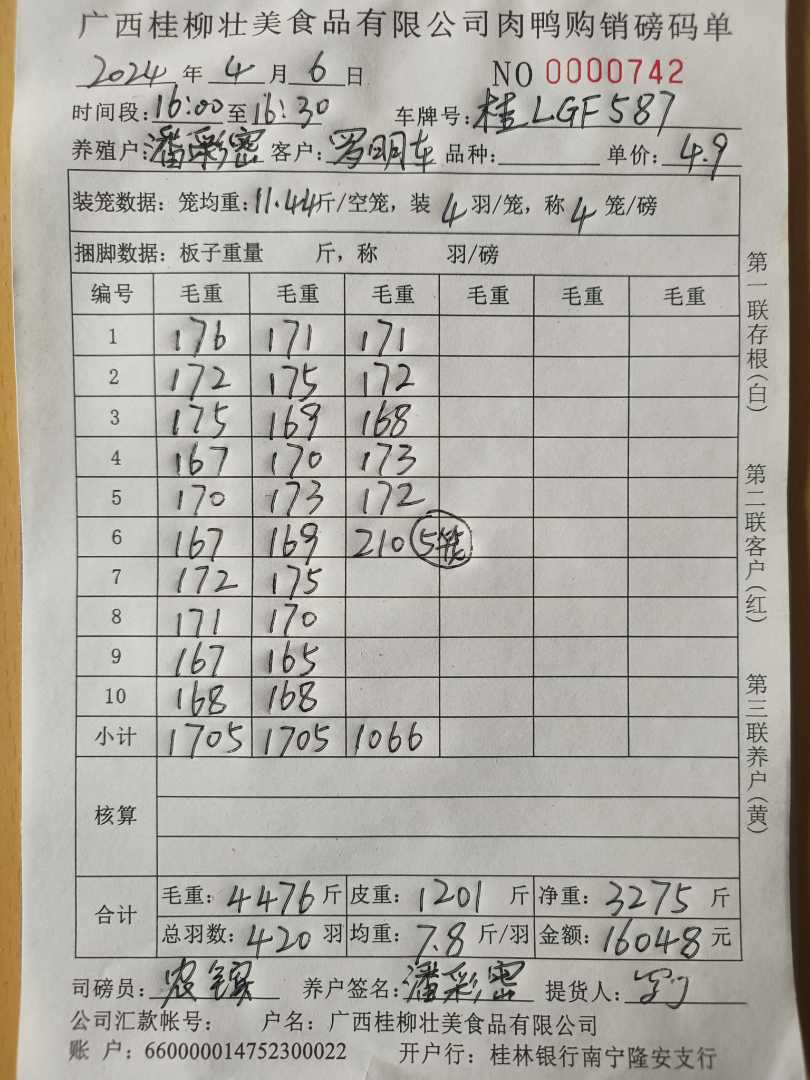 广西桂柳壮美食品有限公司肉鸭购销磅码单
2024 年 4 月 6 日 NO 0000742
时间段: 16:00 至 16:30 车牌号: 桂LGF587
养殖户: 潘彩密 客户: 罗明车 品种: 单价: 4.9
装笼数据: 笼均重: 11.44 斤/空笼, 装 4 羽/笼, 称 4 笼/磅
捆脚数据: 板子重量 斤, 称 羽/磅
编号 毛重 毛重 毛重 毛重 毛重 毛重
1 176 171 171
2 172 175 172
3 175 169 168
4 167 170 173
5 170 173 172
6 167 169 210 5笼
7 172 175
8 171 170
9 167 165
10 168 168
小计 1705 1705 1066
核算
合计
毛重: 4476 斤 皮重: 1201 斤 净重: 3275 斤
总羽数: 420 羽 均重: 7.8 斤/羽 金额: 16048 元
司磅员: 农 养户签名: 潘彩密 提货人:
公司汇款帐号: 户名: 广西桂柳壮美食品有限公司
账 户: 660000014752300022 开户行: 桂林银行南宁隆安支行
第一联存根(白)
第二联客户(红)
第三联养户(黄)